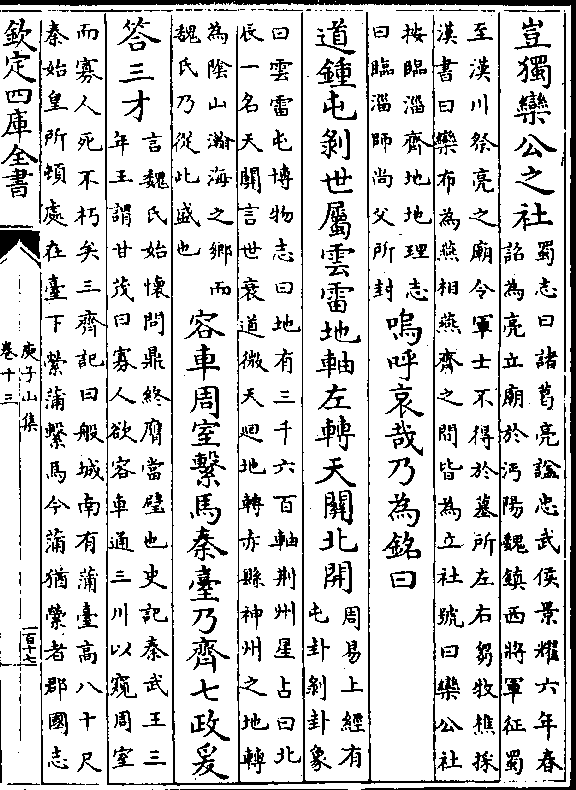 豈獨欒公之社
蜀志曰諸葛亮諡忠武侯景耀六年春
詔為亮立廟於沔陽魏鎮西將軍征蜀
至漢川祭亮之廟令軍士不得於墓所左右芻牧樵採
漢書曰欒布為燕相燕齊之間皆為立社號曰欒公社
按臨淄齊地地理志
曰臨淄師尚父所封
嗚呼哀哉乃為銘曰
道鍾屯剝世屬雲雷地軸左轉天關北開
周易上經有
屯卦剝卦象
曰雲雷屯博物志曰地有三千六百軸荆州星占曰北
辰一名天關言世衰道微天廻地轉亦縣神州之地轉
為陰山瀚海之鄉而
魏氏乃從此盛也
容車周室繫馬秦臺乃齊七政爰
答三才
言魏氏始懷問鼎終膺當璧也史記秦武王三
年王謂甘茂曰寡人欲容車通三川以窺周室
而寡人死不朽矣三齊記曰般城南有蒲臺高八十尺
秦始皇所頓處在臺下縈蒲繫馬今蒲猶縈者郡國志
欽定四庫全書
庾子山集
卷十三
一百十七